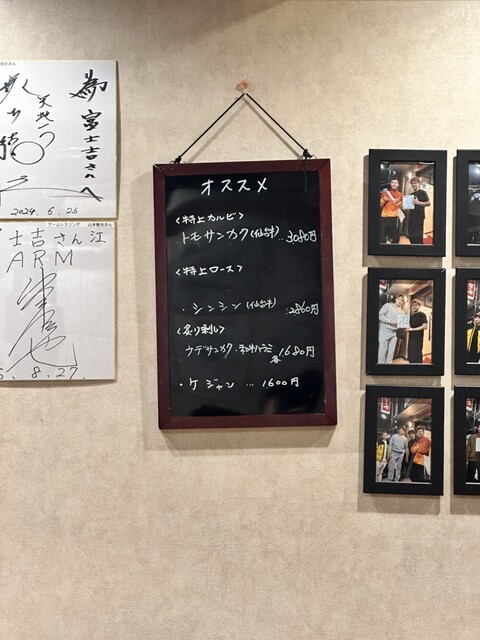 為
富士吉さんへ
2024.6.25
アームレスリング 山本雅也さん
士吉さん江
ARM
5.8.27.
オススメ
<特上カルビ>
トモサンカク(仙台牛)…3080円
<特上ロース>
・シンシン(仙台牛) 2860円
<炙り刺し>
ウデサンカク・和牛ハラミ 各1680円
・ケジャン … 1600円